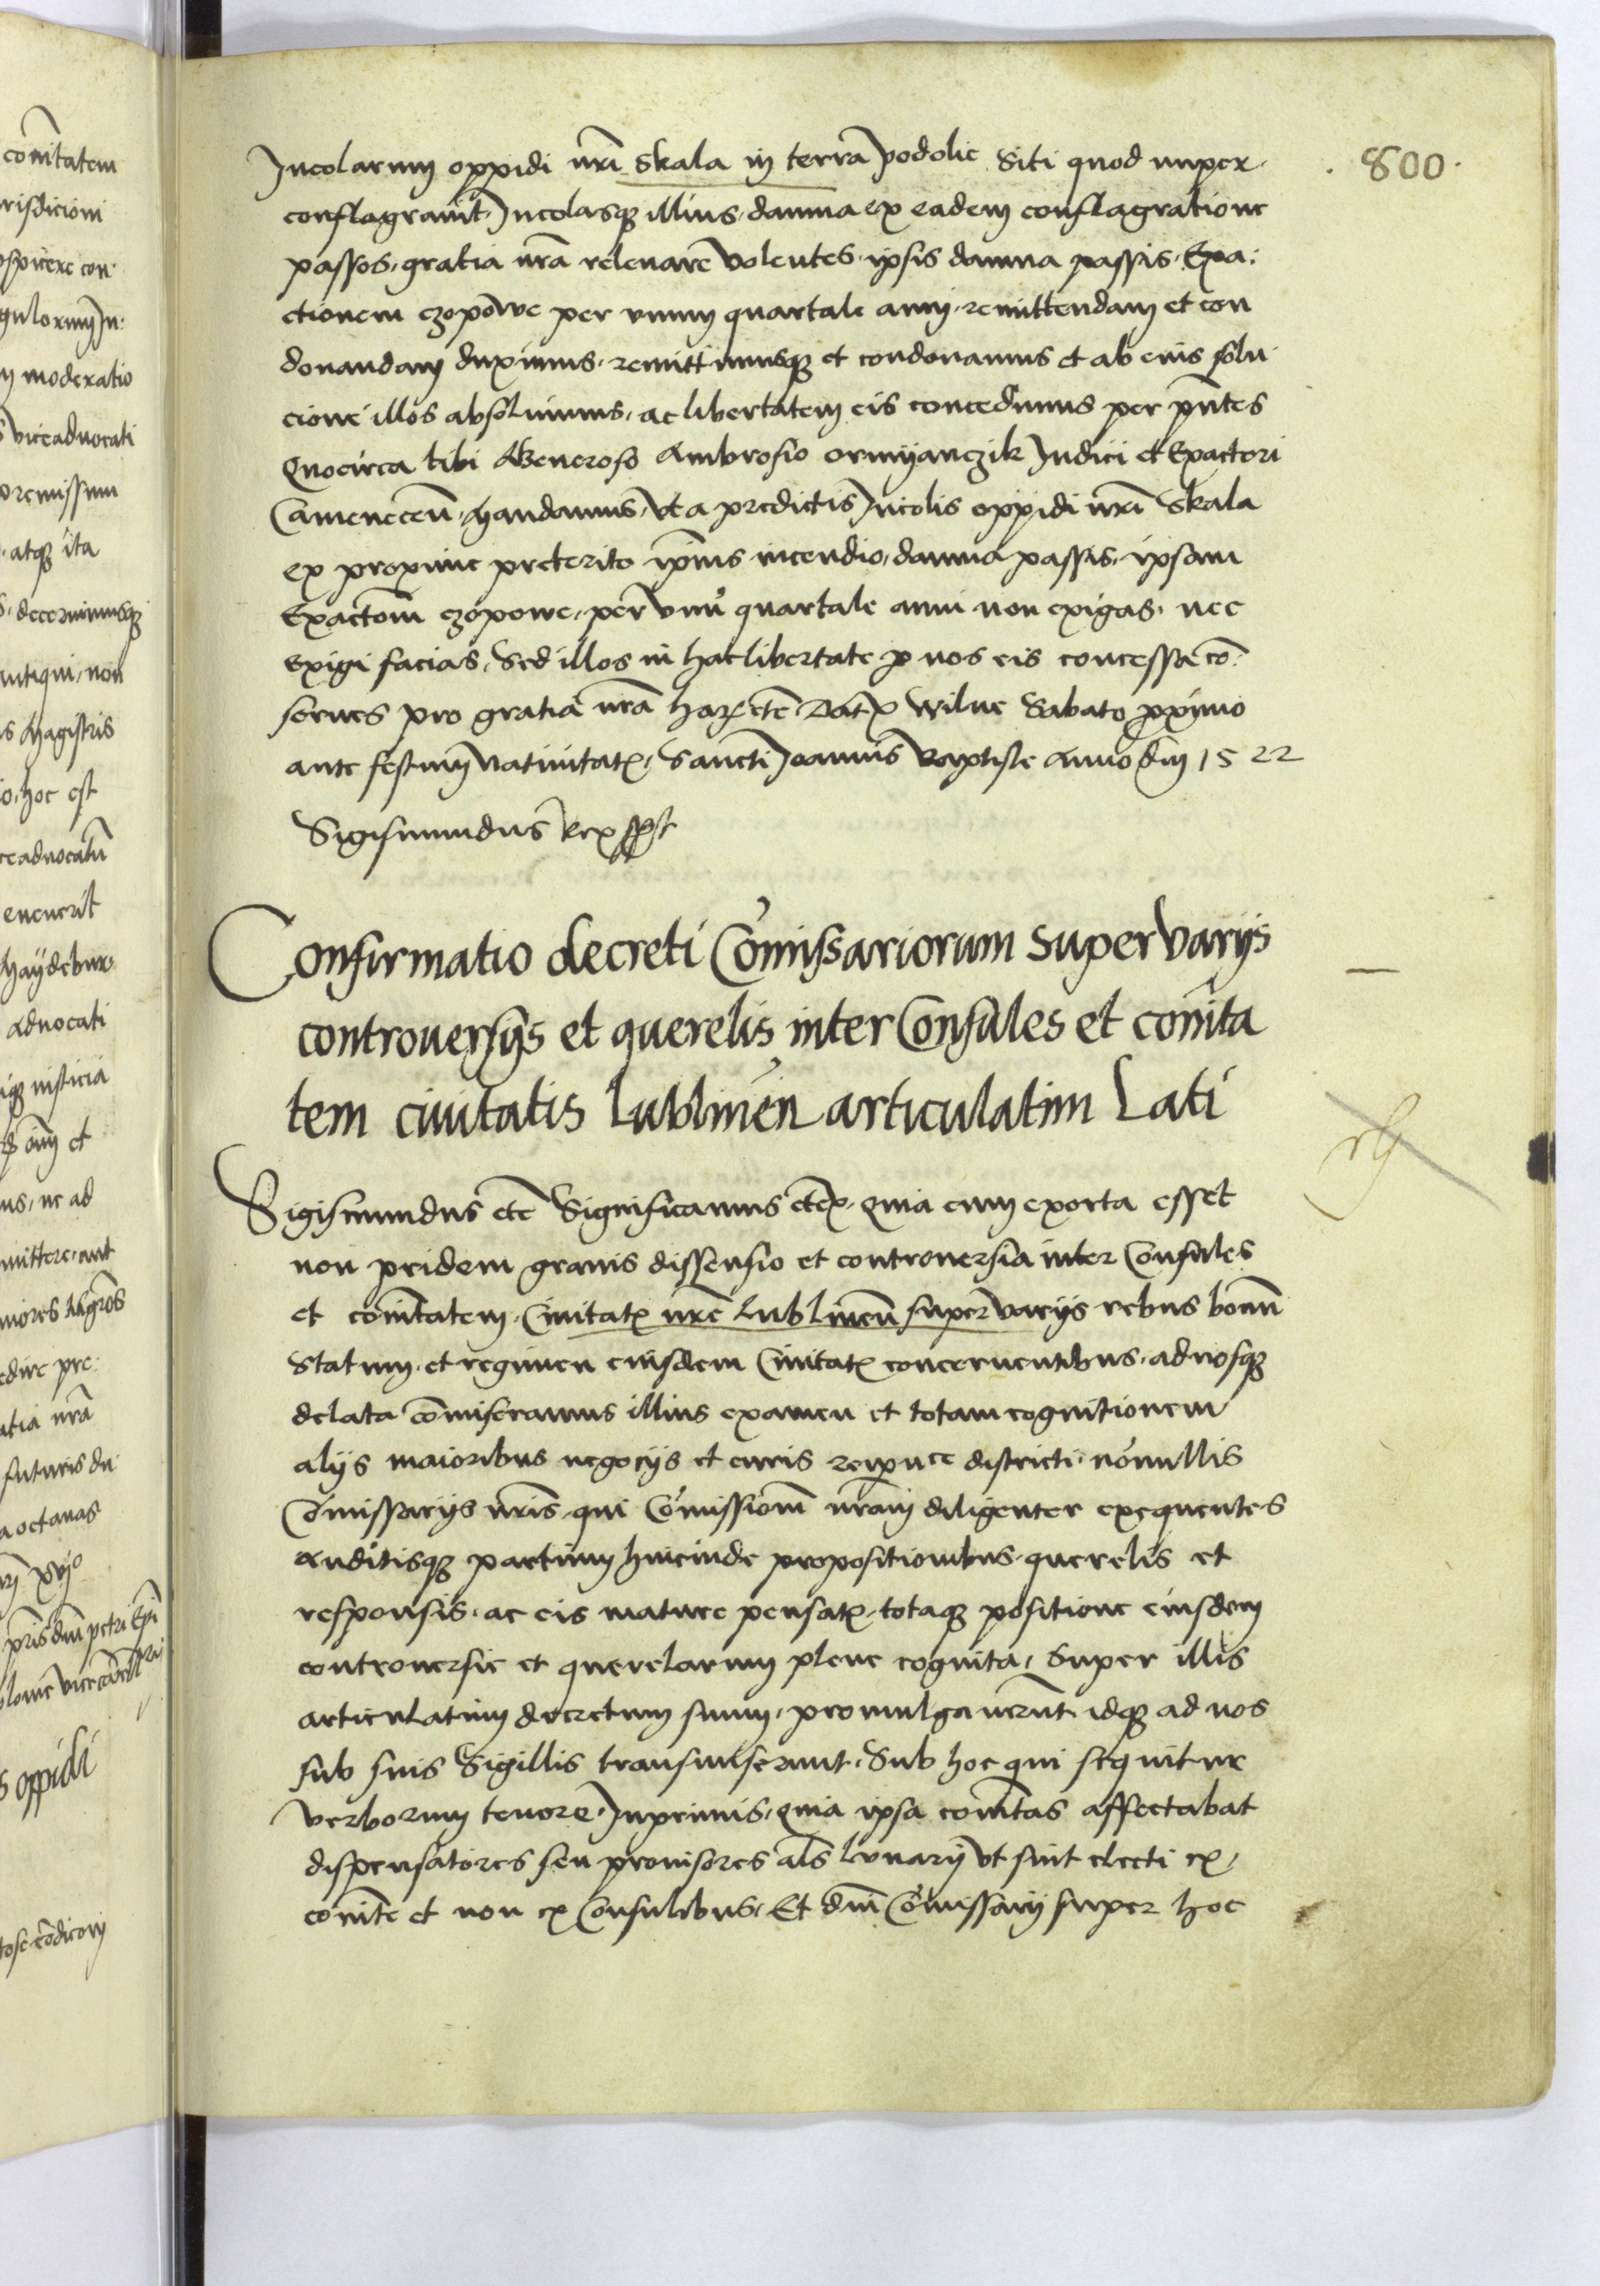 800
Incolarum oppidi nri Skala in terra podolie Siti quod nuper
conflagravit Incolasque illius damna ex eadem conflagratione
passos gratia nra relevare volentes ipsis damna passis Exa
ctionem czopowe per unum quartale anni remittendam et con
donandam duximus remittimusque et condonamus et ab eius solu
cione illos absolvimus ac libertatem eis concedimus per pntes
Quocirca tibi Generoso Ambrosio ormyanczik Iudici et Exactori
Camenecen Mandamus ut a predictis Incolis oppidi nri Skala
ex proxime preterito ipius incendio damna passis ipsam
Exactom czopowe per unu quartale anni non exigas nec
exigi facias Sed illos in hac libertate p nos eis concessa co
serves pro gratia nra harz etc Datz Wilne Sabato pximo
ante festum nativitatz Sancti Joannis Baptiste Anno dm 1522
Sigismundus Rex sspt
Confirmatio decreti Comissariorum super varys
controversys et querelis inter Consules et comita
tem civitatis Lublinen articulatim Lati
Sigismundus etc Significamus etc Quia cum exorta esset
non pridem gravis dissensio et controversia inter Consules
et comitatem Civitatz nre Lublinen super varys rebus bonu
Statum et regimen eiusdem Civitatz concernentibus ad nosque
delata comiseramus illius examen et totam cognitionem
alys maioribus negocys et curis reipuce districti nonullis
Comissarys nris qui Comissiom nram diligenter exequentes
Auditisque partium hincinde propositionibus querelis et
responsis ac eis mature pensatz totaque positione eiusdem
controversie et querelarum plene cognita Super illis
articulatim decretum suum promulgaverunt idque ad nos
sub suis Sigillis transmiserunt Sub hoc qui sequitur
verborum tenore Inprimis quia ipsa comitas affectabat
dispensatores seu provisores als Lunary ut sint electi ex
comite et non ex Consulibus Et dni Comissary super hoc